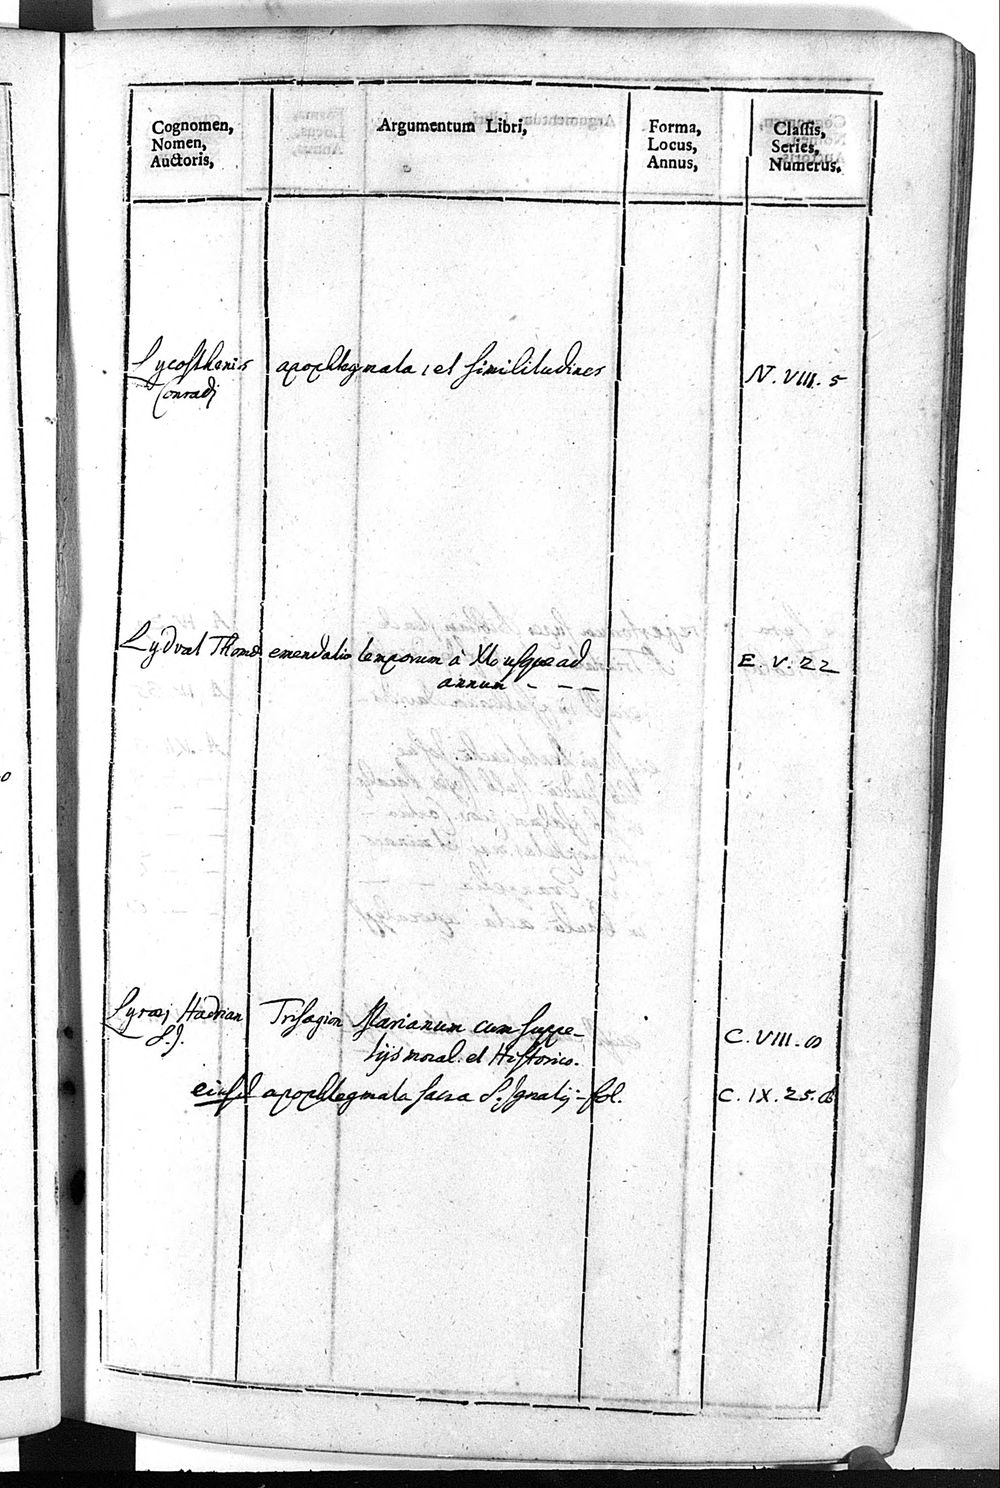 Cognomen,
Nomen,
Auctoris,
Argumentum Libri,
Forma,
Locus,
Annus,
Classis,
Series,
Numerus.
Lycosthenis apophtegmata, et similitudines N. VIII. 5
Conradi
Lydyat Thomæ emendatio temporum à Xto usque ad E. V. 22
annum - - -
Lyræi Hadrian Trisagion Marianum cum suppe-
S.J. tijs moral. et Historico. C. VIII. 8
eiusd apophtegmata sacra S. Ignatij - fol. C. IX. 25.